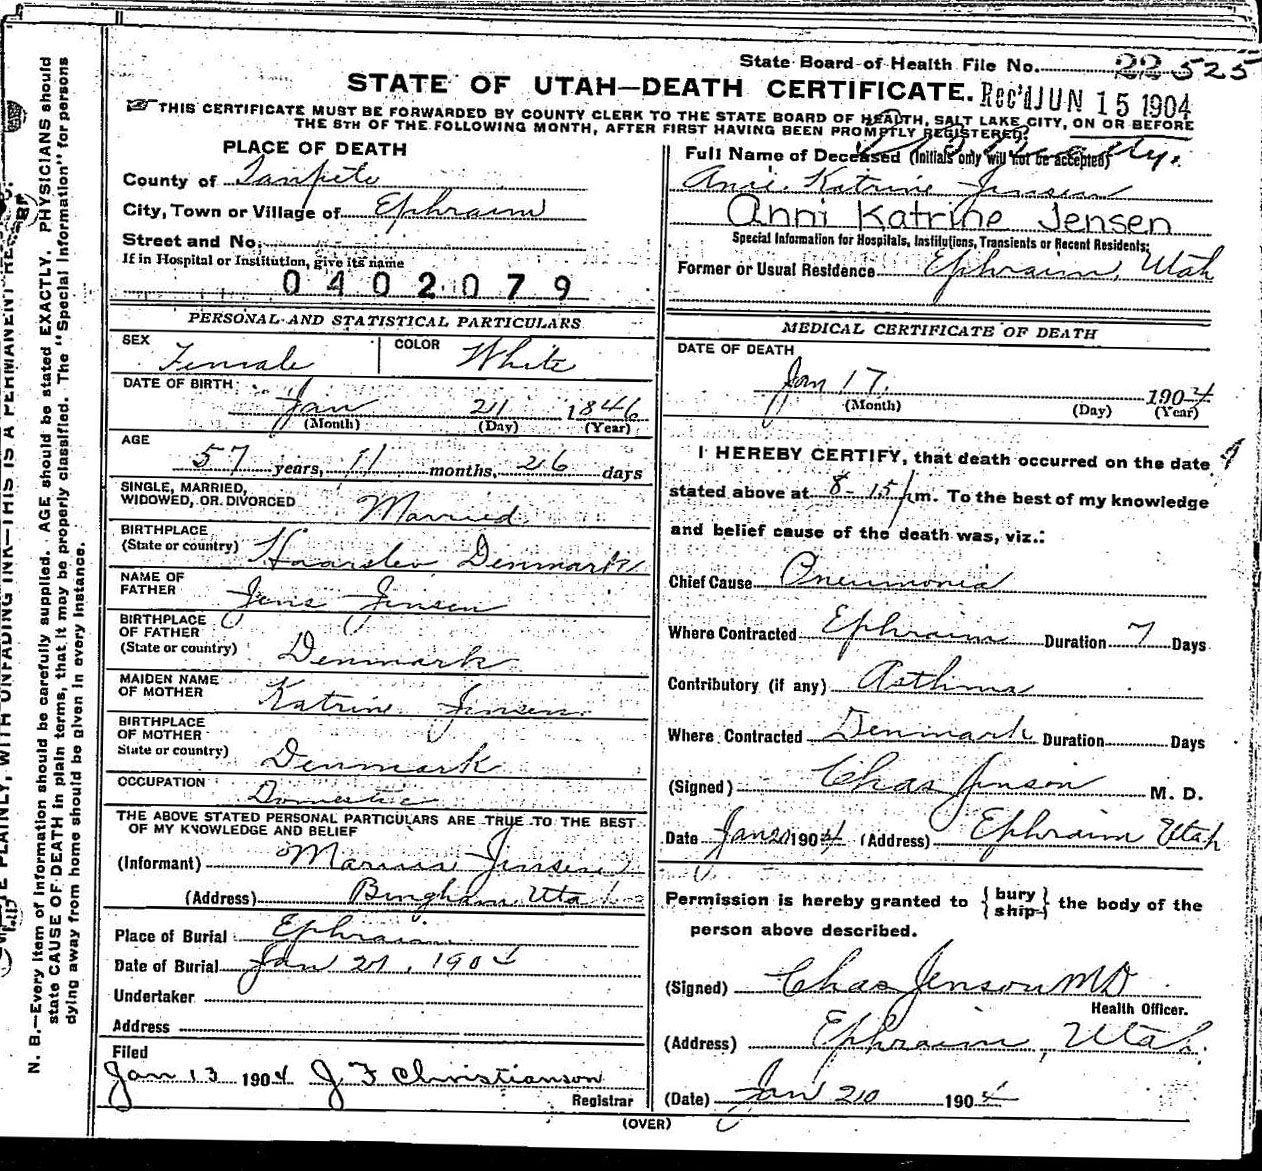 State Board of Health File No. 22525
STATE OF UTAH—DEATH CERTIFICATE. Rec'd JUN 15 1904
THIS CERTIFICATE MUST BE FORWARDED BY COUNTY CLERK TO THE STATE BOARD OF HEALTH, SALT LAKE CITY, ON OR BEFORE
THE 5TH OF THE FOLLOWING MONTH, AFTER FIRST HAVING BEEN PROMPTLY REGISTERED.
PLACE OF DEATH
County of Sanpete
City, Town or Village of Ephraim
Street and No.
If in Hospital or Institution, give its name
0402079
Full Name of Deceased (Initials only will not be accepted)
Anie Katrine Jensen
Anni Katrine Jensen
Special Information for Hospitals, Institutions, Transients or Recent Residents;
Former or Usual Residence Ephraim, Utah
PERSONAL AND STATISTICAL PARTICULARS
SEX Female COLOR White
DATE OF BIRTH
Jan 21 1846
(Month) (Day) (Year)
AGE
57 years, 11 months, 26 days
SINGLE, MARRIED,
WIDOWED, OR DIVORCED Married
BIRTHPLACE
(State or country) Denmark
NAME OF
FATHER Jens Jensen
BIRTHPLACE
OF FATHER
(State or country) Denmark
MAIDEN NAME
OF MOTHER Katrine Jensen
BIRTHPLACE
OF MOTHER
State or country) Denmark
OCCUPATION Domestic
THE ABOVE STATED PERSONAL PARTICULARS ARE TRUE TO THE BEST
OF MY KNOWLEDGE AND BELIEF
(Informant) Jensen
(Address) Bingham Utah
Place of Burial Ephraim
Date of Burial Jan 21, 1904
Undertaker
Address
Filed
Jan 13 1904 J F Christianson
Registrar
MEDICAL CERTIFICATE OF DEATH
DATE OF DEATH
Jan 17. 1904
(Month) (Day) (Year)
I HEREBY CERTIFY, that death occurred on the date
stated above at 8-15 m. To the best of my knowledge
and belief cause of the death was, viz.:
Chief Cause Pneumonia
Where Contracted Ephraim Duration 7 Days
Contributory (if any) Asthma
Where Contracted Denmark Duration Days
(Signed) Chas Jenson M. D.
Date Jan 20 1904 (Address) Ephraim Utah
Permission is hereby granted to { bury ship } the body of the
person above described.
(Signed) Chas Jenson MD
Health Officer.
(Address) Ephraim, Utah.
(Date) Jan 20 1904
(OVER)
N. B.—Every item of information should be carefully supplied. AGE should be stated EXACTLY. PHYSICIANS should
state CAUSE OF DEATH in plain terms, that it may be properly classified. The "Special Information" for persons
dying away from home should be given in every instance.
PLAINLY, WITH UNFADING INK—THIS IS A PERMANENT